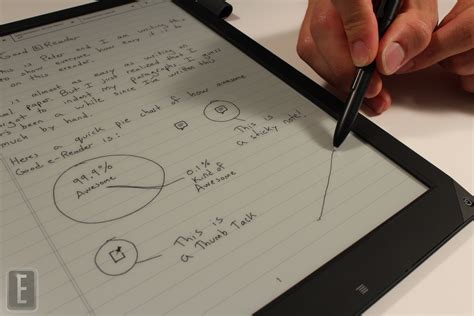 Good E-Reader
is Peter and I am writing th
show everyone how easy it is to
on this ereader.
is almost as easy as writing on
paper. But I just realized that I
to indent my paragraphs. I guess
been a while since I've written
much by hand.
Heres a quick pie chart of how awesome
Good e-Reader is:
99.9%
Awesome
0.1%
Kind of
Awesome
This is
a sticky note!
This is
a Thumb Tack
1
E